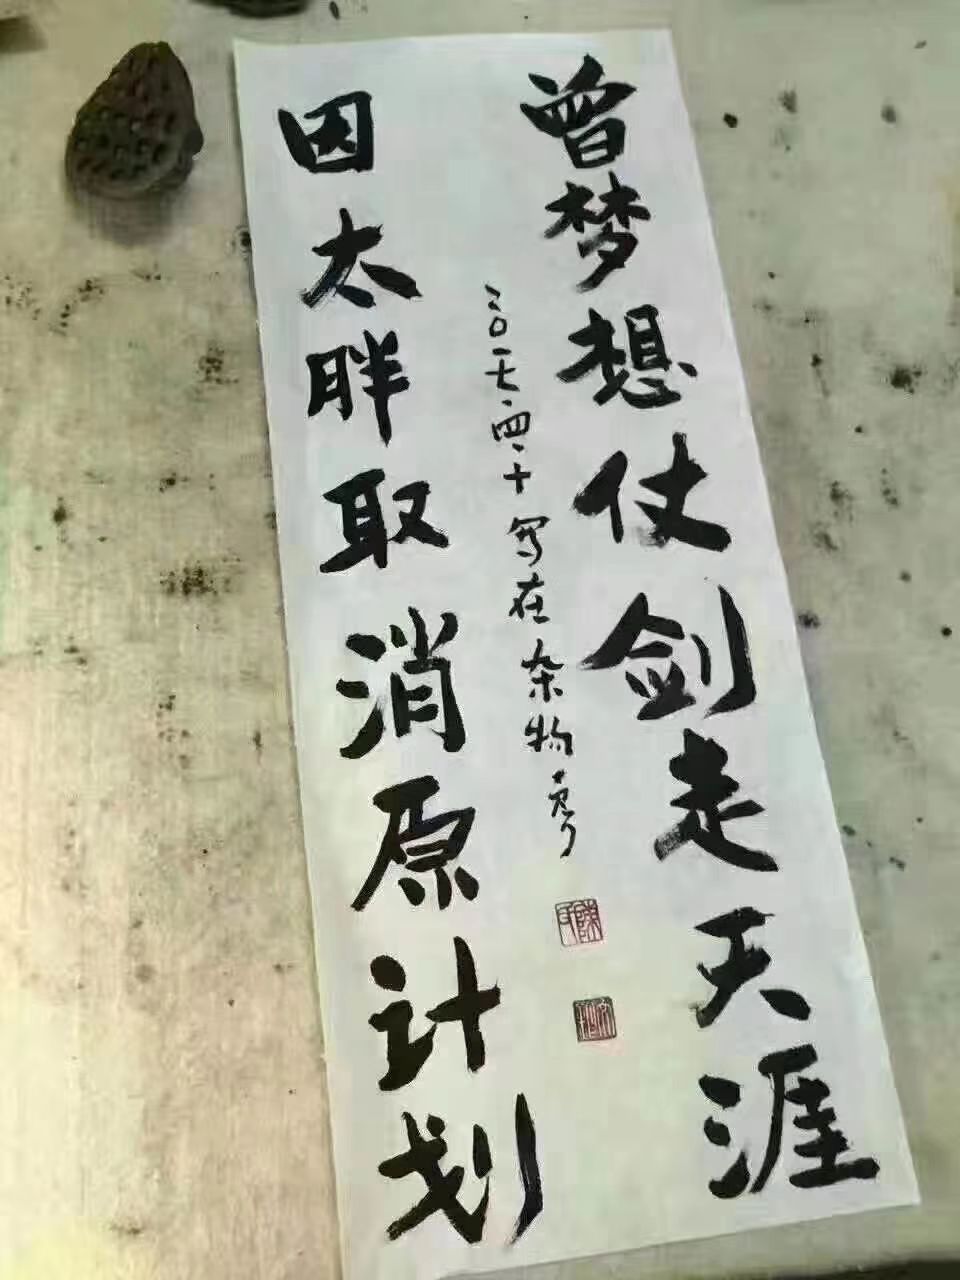 曾梦想仗剑走天涯
因太胖取消原计划
二〇一七.四.十写在杂物房